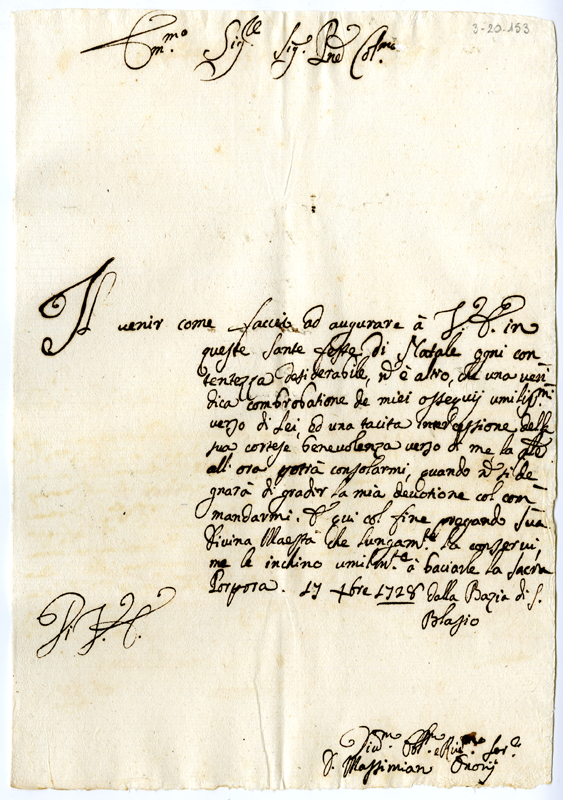 3-20-153
Em.mo Sig.re Sig.r Pne Col.mo
Il venir come faccio ad augurare à V. E. in
queste Sante feste di Natale ogni con-
tentezza desiderabile, nõ è altro, che una veri-
dica comprobatione de miei ossequij umiliss.mi
verso di Lei, ed una tacita intercessione della
sua cortese benevolenza verso di me, la qle
all'ora potrà consolarmi, quando nõ si de-
gnarà di gradir la mia devotione col com-
mandarmi. E qui col fine pregando Sua
Divina Maestà che lungam.te la conservi,
me le inchino umilm.te à baciare la Sacra
Porpora. 17 Xbre 1728 dalla Bazia di S.
Blasio
Di V. E.
Div.mo Obl.mo e Riv.mo Ser.re
D. Massimian